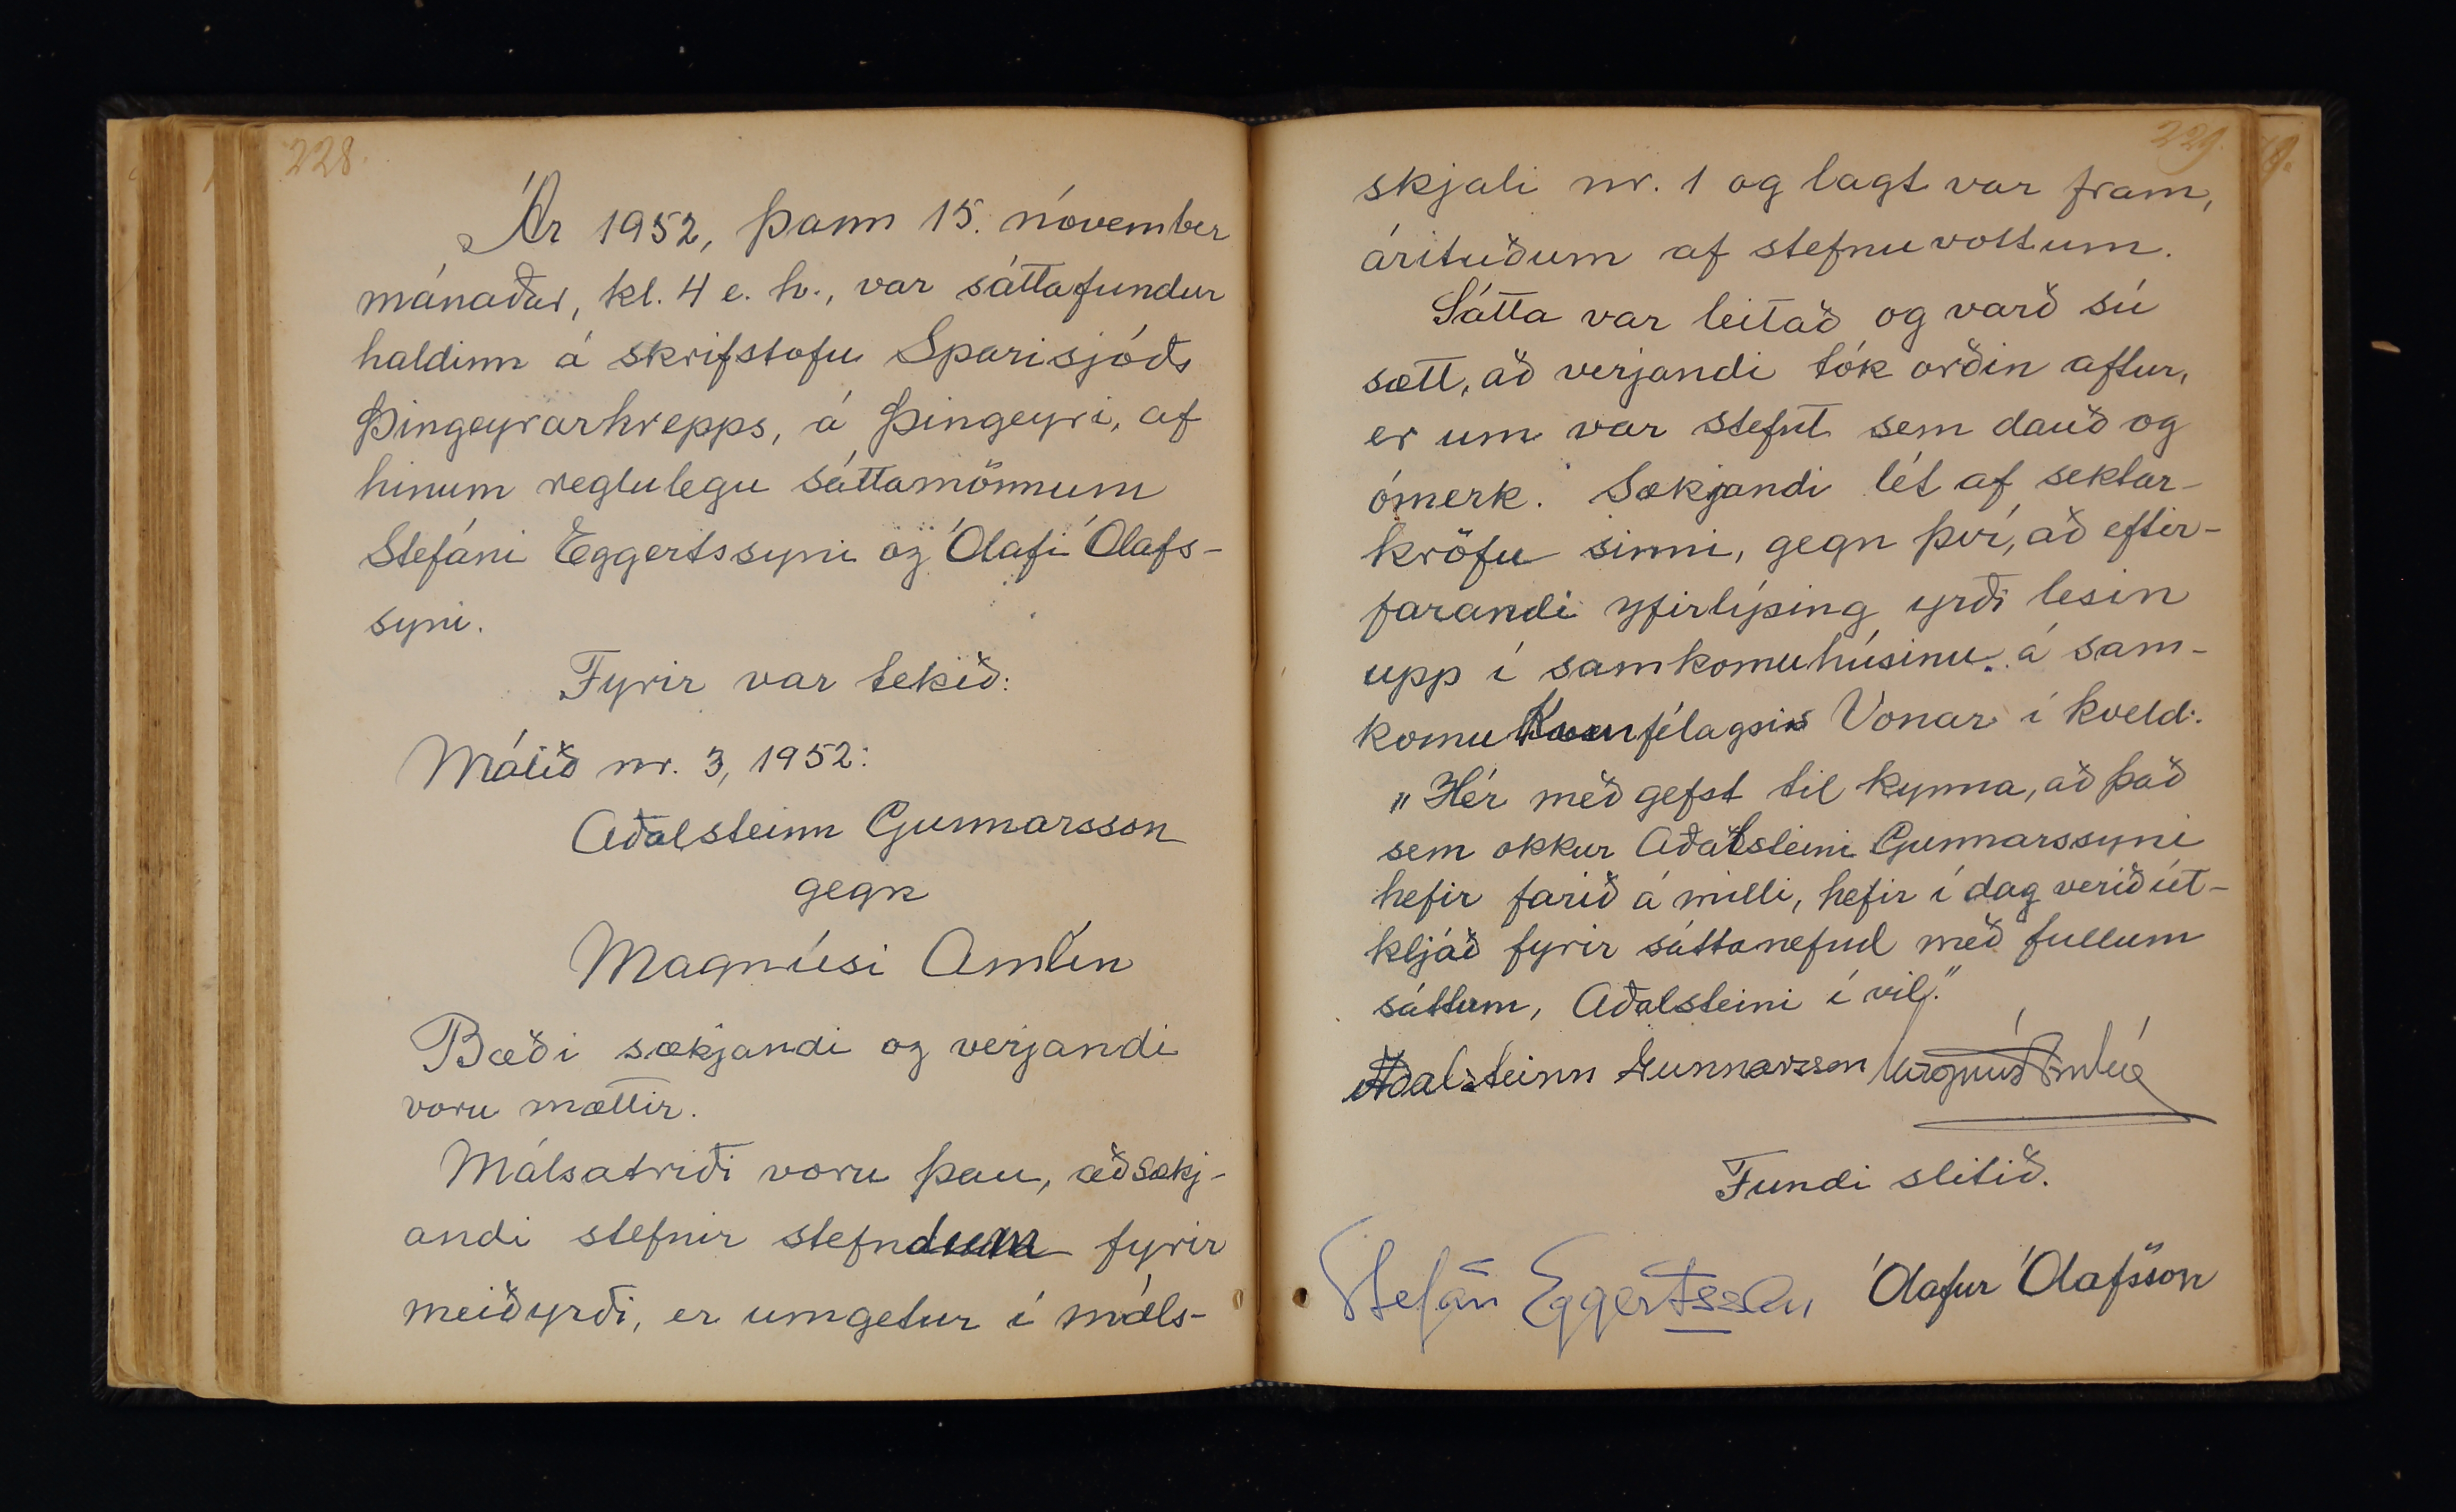 228.
Ár 1952, þann 15. nóvember
mánaðar, kl. 4 e. h., var sáttafundur
haldinn á skrifstofu Sparisjóðs
Þingeyrarhrepps, á Þingeyri, af
hinum reglulegu sáttamönnum
Stefáni Eggertssyni og Ólafi Ólafs-
syni.
Fyrir var tekið:
Málið nr. 3, 1952:
Aðalsteinn Gunnarsson
gegn
Magnúsi Amlín
Bæði sækjandi og verjandi
voru mættir.
Málsatriði voru þau, að sækj-
andi stefnir stefndum fyrir
meiðyrði, er umgetur í máls-
229.
skjali nr. 1 og lagt var fram,
árituðum af stefnuvottum.
Sátta var leitað og varð sú
sætt, að verjandi tók orðin aftur,
er um var stefnt sem dauð og
ómerk. Sækjandi lét af sektar-
kröfu sinni, gegn því, að eftir-
farandi yfirlýsing yrði lesin
upp í samkomuhúsinu á sam-
komu Kvenfélagsins Vonar í kveld:
„Hér með gefst til kynna, að það
sem okkur Aðalsteini Gunnarssyni
hefir farið á milli, hefir í dag verið út-
kljáð fyrir sáttanefnd með fullum
sáttum, Aðalsteini í vil."
Aðalsteinn Gunnarsson Magnús Amlín
Fundi slitið.
Stefán Eggertsson Ólafur Ólafsson